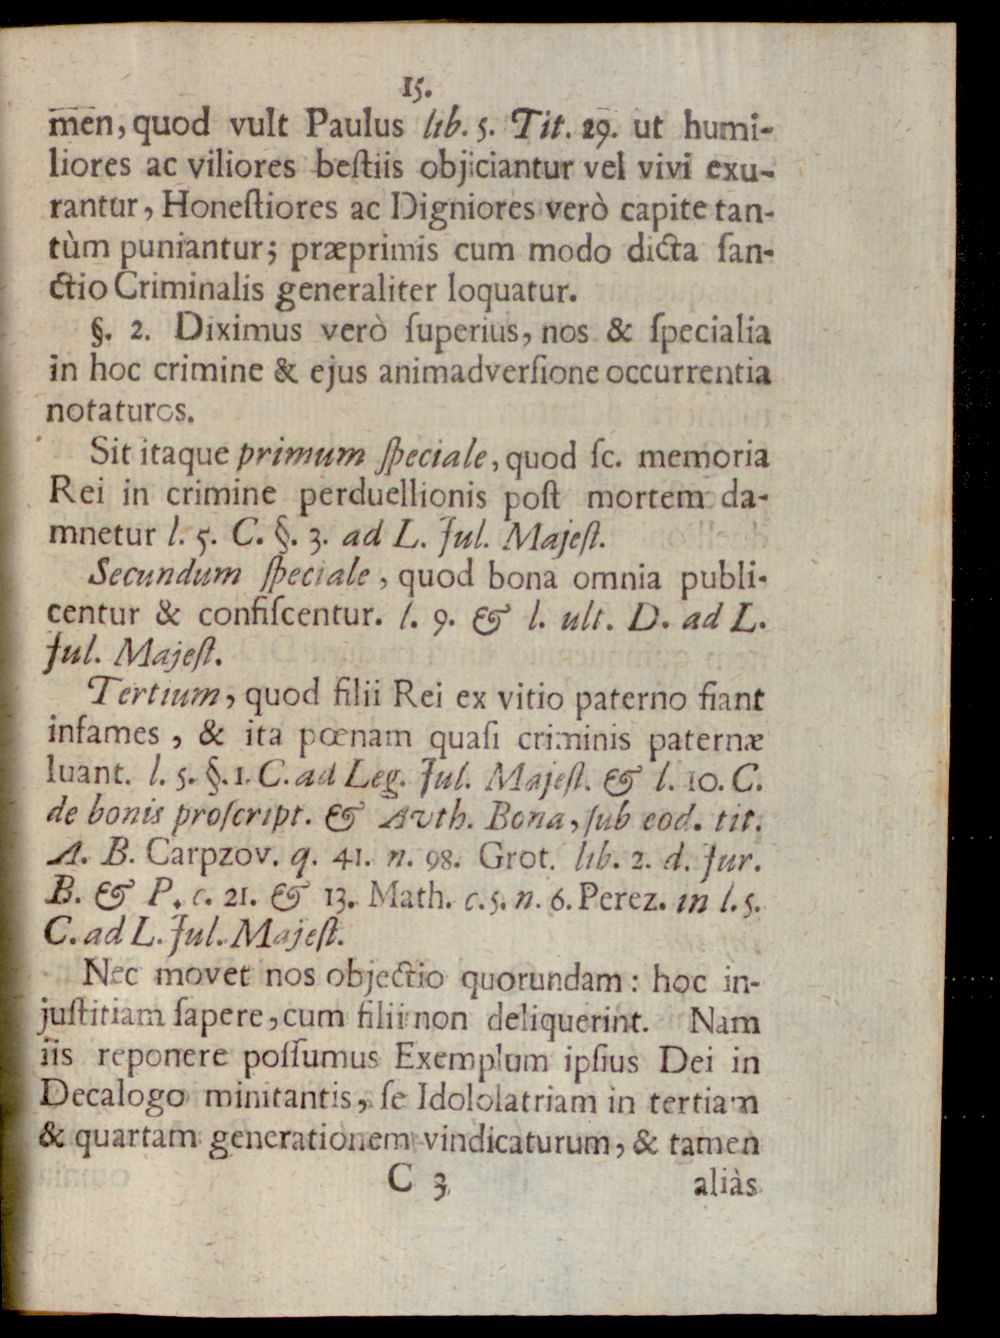 15.
men, quod vult Paulus lib. 5. Tit. 29. ut humi-
liores ac viliores beſtiis objiciantur vel vivi exu-
rantur, Honeſtiores ac Digniores verò capite tan-
tùm puniantur; præprimis cum modo dicta ſan-
ctio Criminalis generaliter loquatur.
§. 2. Diximus verò ſuperius, nos & ſpecialia
in hoc crimine & ejus animadverſione occurrentia
notaturos.
Sit itaque primum ſpeciale, quod ſc. memoria
Rei in crimine perduellionis poſt mortem da-
mnetur l. 5. C. §. 3. ad L. Jul. Majeſt.
Secundum ſpeciale, quod bona omnia publi-
centur & confiſcentur. l. 9. & l. ult. D. ad L.
Jul. Majeſt.
Tertium, quod filii Rei ex vitio paterno fiant
infames, & ita pœnam quaſi criminis paternæ
luant. l. 5. §. 1. C. ad Leg. Jul. Majeſt. & l. 10. C.
de bonis proſcript. & Avth. Bona, ſub eod. tit.
A. B. Carpzov. q. 41. n. 98. Grot. lib. 2. d. Jur.
B. & P. c. 21. & 13. Math. c. 5. n. 6. Perez. in l. 5.
C. ad L. Jul. Majeſt.
Nec movet nos objectio quorundam: hoc in-
juſtitiam ſapere, cum filii non deliquerint. Nam
iis reponere poſſumus Exemplum ipſius Dei in
Decalogo minitantis, ſe Idololatriam in tertiam
& quartam generationem vindicaturum, & tamen
C 3 aliàs